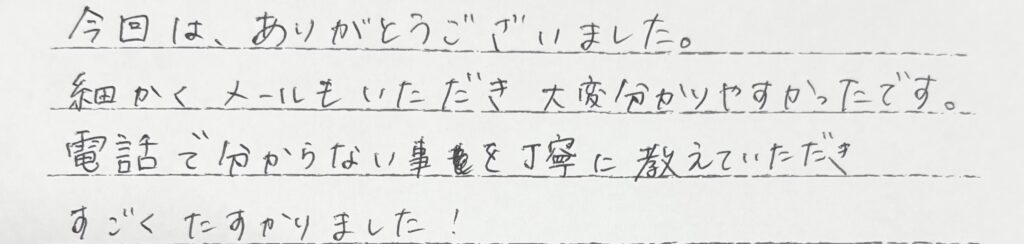 今回は、ありがとうございました。
細かくメールもいただき大変分かりやすかったです。
電話で分からない事を丁寧に教えていただき
すごくたすかりました!